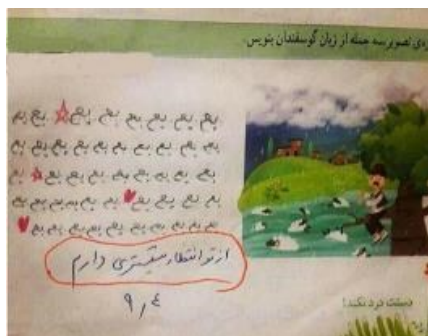 ره‌ی تصویر سه جمله از زبان گوسفندان بنویس.
بع بع بع بع بع بع بع بع
بع بع بع بع بع بع بع بع بع بع
بع بع بع بع بع بع بع بع بع
بع بع بع بع بع بع بع بع بع
بع بع بع بع بع بع بع بع بع
از تو انتظار بیشتری دارم
۹٫۴
دستت درد نکند!